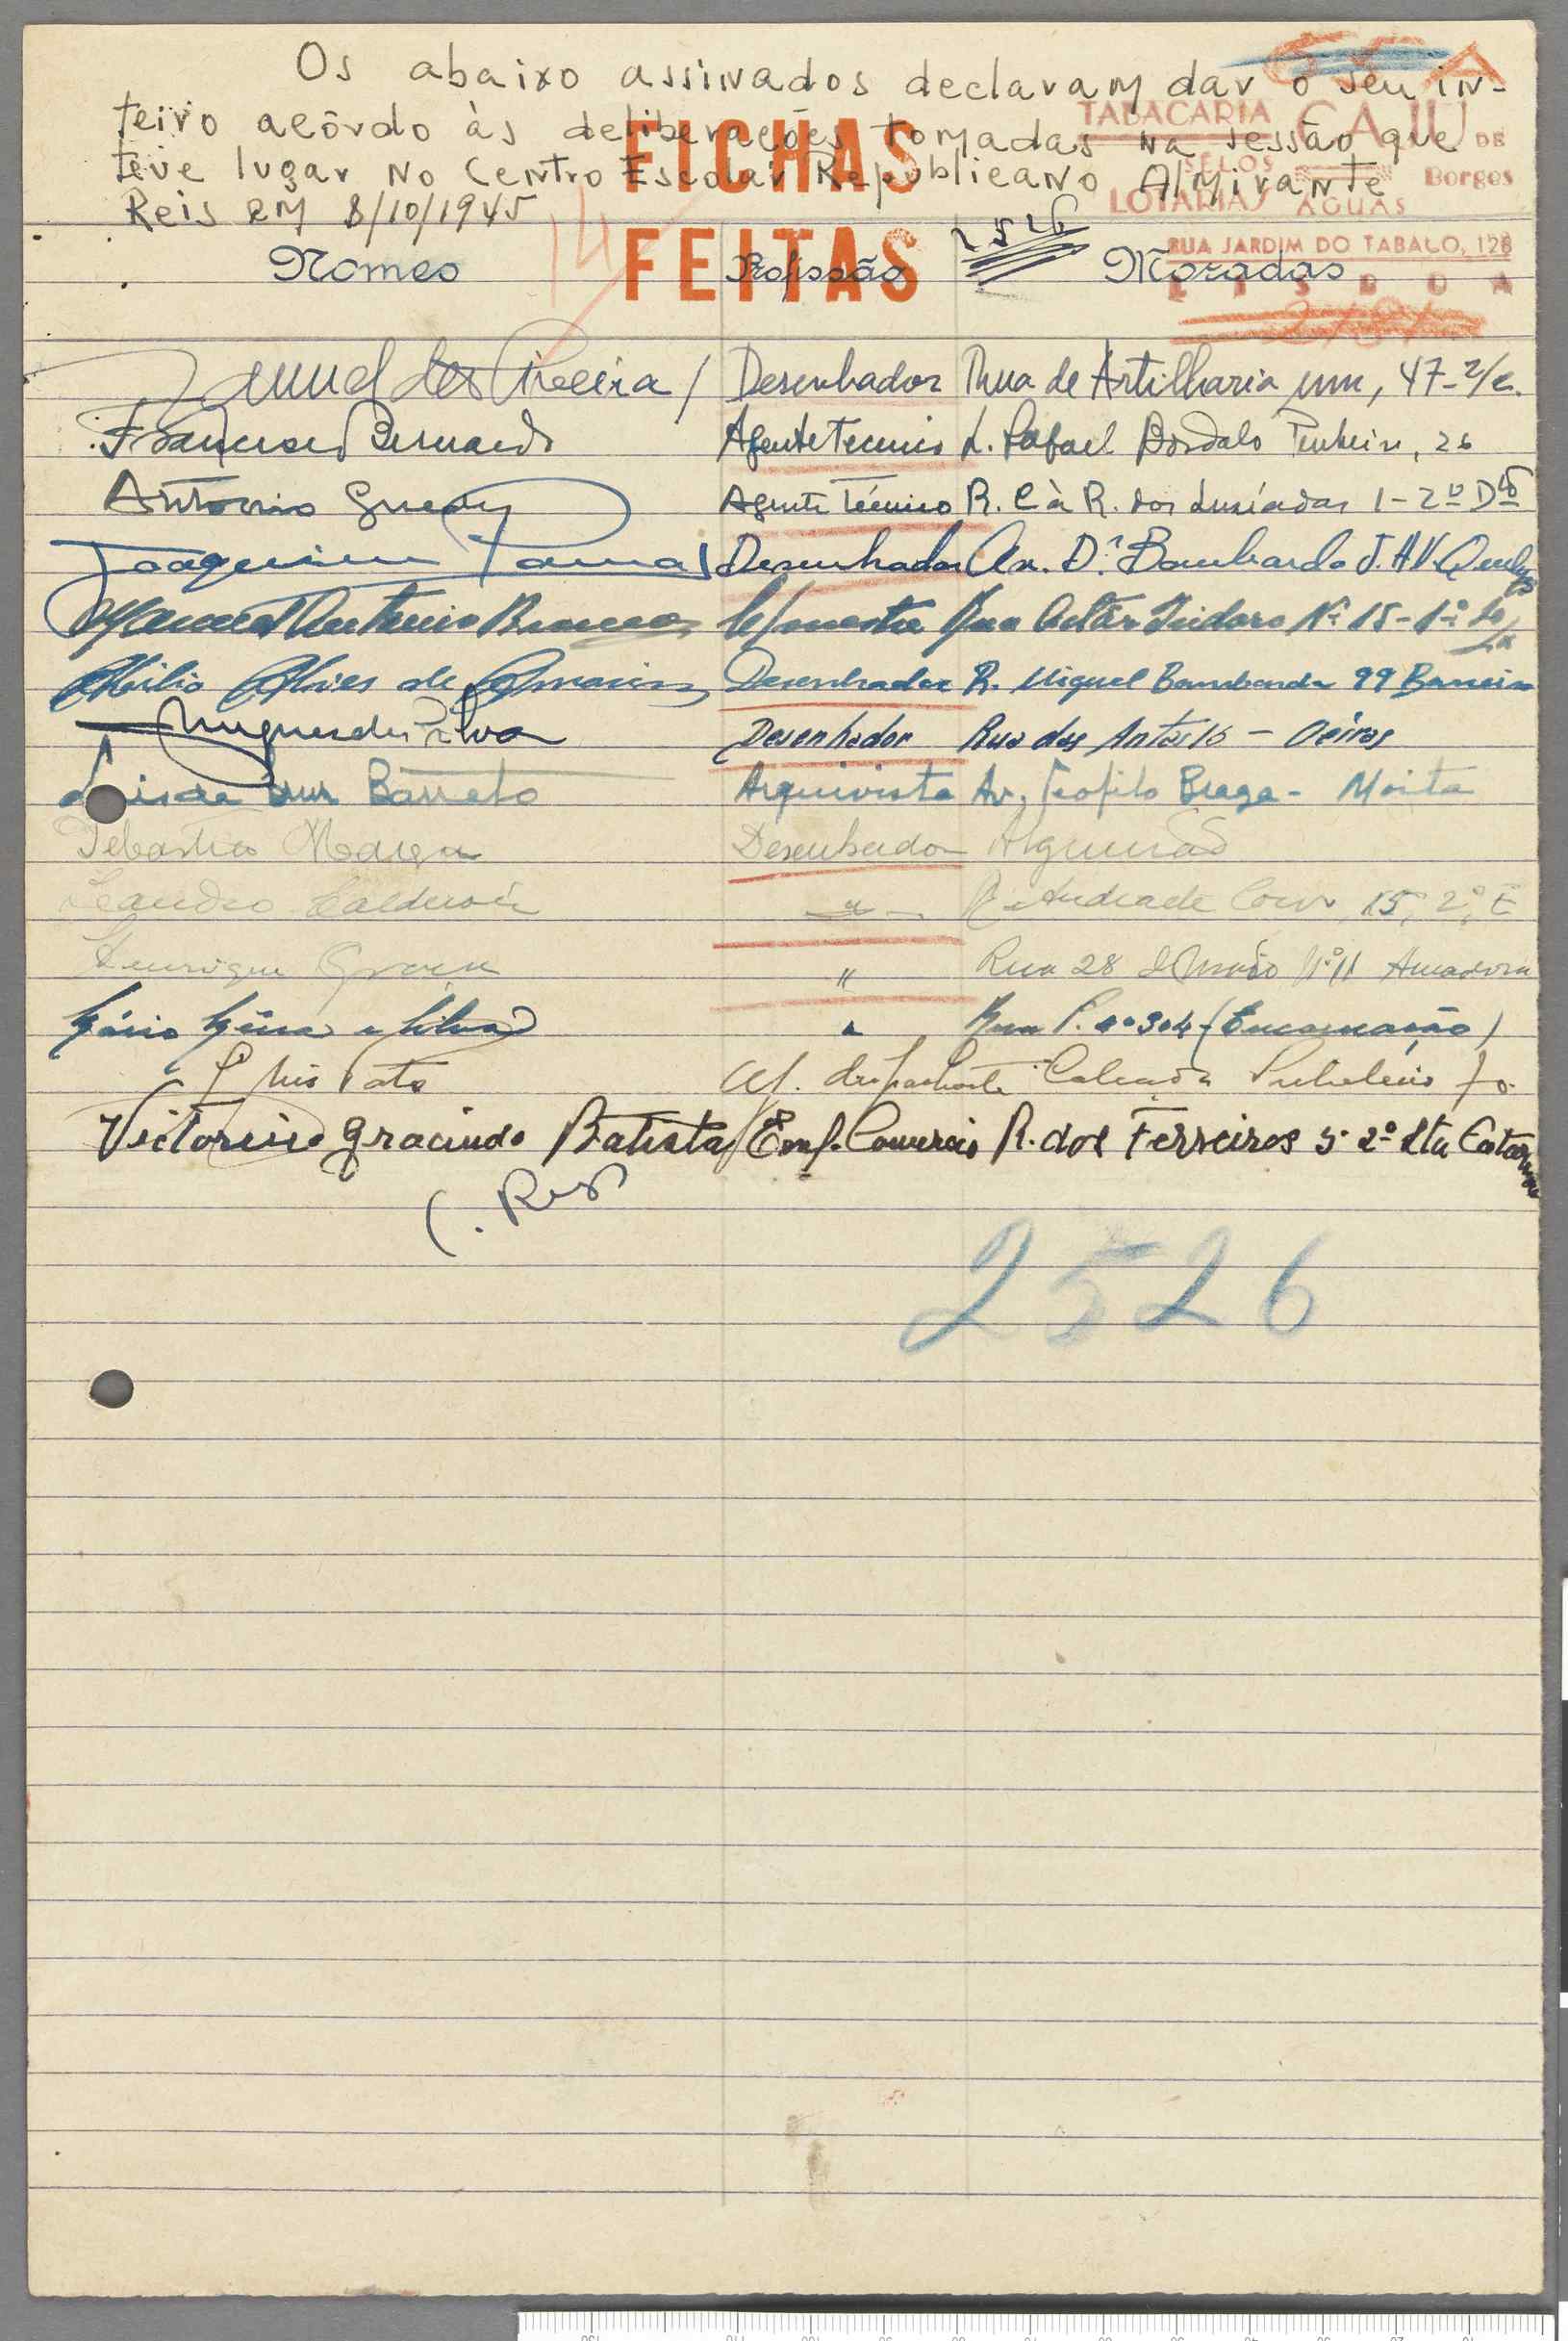 Os abaixo assinados declaram dar o seu in-
teiro acôrdo às deliberações tomadas na sessão que
teve lugar no Centro Escolar Republicano Almirante
Reis em 8/10/1945
FICHAS
FEITAS
TABACARIA CAJU DE
SELOS Borges
LOTARIAS AGUAS
RUA JARDIM DO TABACO, 128
LISBOA
2526
Nomes Profissão Moradas
Desenhador Rua de Artilharia um, 47-2/e.
Francisco Bernardo Agente Tecnico L. Rafael Bordalo Pinheiro, 26
Antonio Agente Técnico R. C à R. dos Lusíadas 1-2º Dtº
Joaquim Desenhador Av. Dr. Bombarda
Manuel Antonio Rua Actor Isidoro Nº 15-1º
Abilio Alves de Desenhador R. Miguel Bombarda 99 Barreiro
da Silva Desenhador Rua das 16 - Oeiras
Barreto Arquivista Av. Teofilo Braga - Moita
Sebastião Desenhador Algueirão
Leandro Calderón " R. Andrade Corvo, 15, 2º, E
Henrique " Rua 28 de Maio Nº 11 Amadora
Mário e Silva " Rua P. nº 304 (Encarnação)
Luis Pato Aj. despachante Calçada
Victorino Gracindo Batista Emp. Comercio R. dos Ferreiros 5 2º Sta Catarina
2526